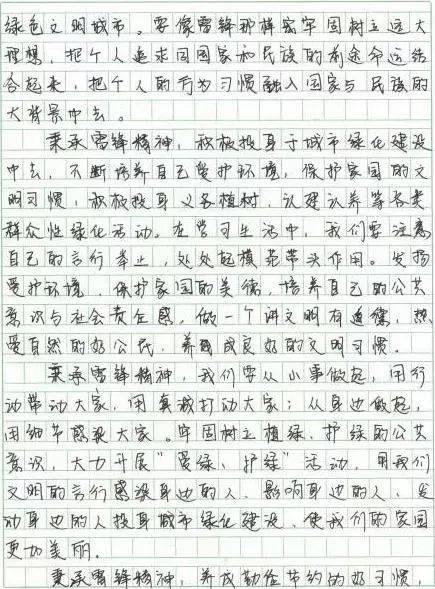 绿色文明城市。要像雷锋那样密牢固树立远大
理想，把个人追求同国家和民族的前途命运结
合起来，把个人的行为习惯融入国家与民族的
大背景中去。
秉承雷锋精神，积极投身于城市绿化建设
中去，不断培养自己爱护环境，保护家园的文
明习惯，积极投身义务植树、认建认养等各类
群众性绿化活动。在学习生活中，我们要注意
自己的言行举止，处处起模范带头作用。发扬
爱护环境、保护家园的美德，培养自己的公共
意识与社会责任感，做一个讲文明有道德，热
爱自然的好公民，养成良好的文明习惯。
秉承雷锋精神，我们要从小事做起，用行
动带动大家，用真诚打动大家；从身边做起，
用细节感染大家。牢固树立植绿、护绿的公共
意识，大力开展“爱绿、护绿”活动，用我们
文明的言行感染身边的人、影响身边的人、发
动身边的人投身城市绿化建设、使我们的家园
更加美丽。
秉承雷锋精神，养成勤俭节约的好习惯，